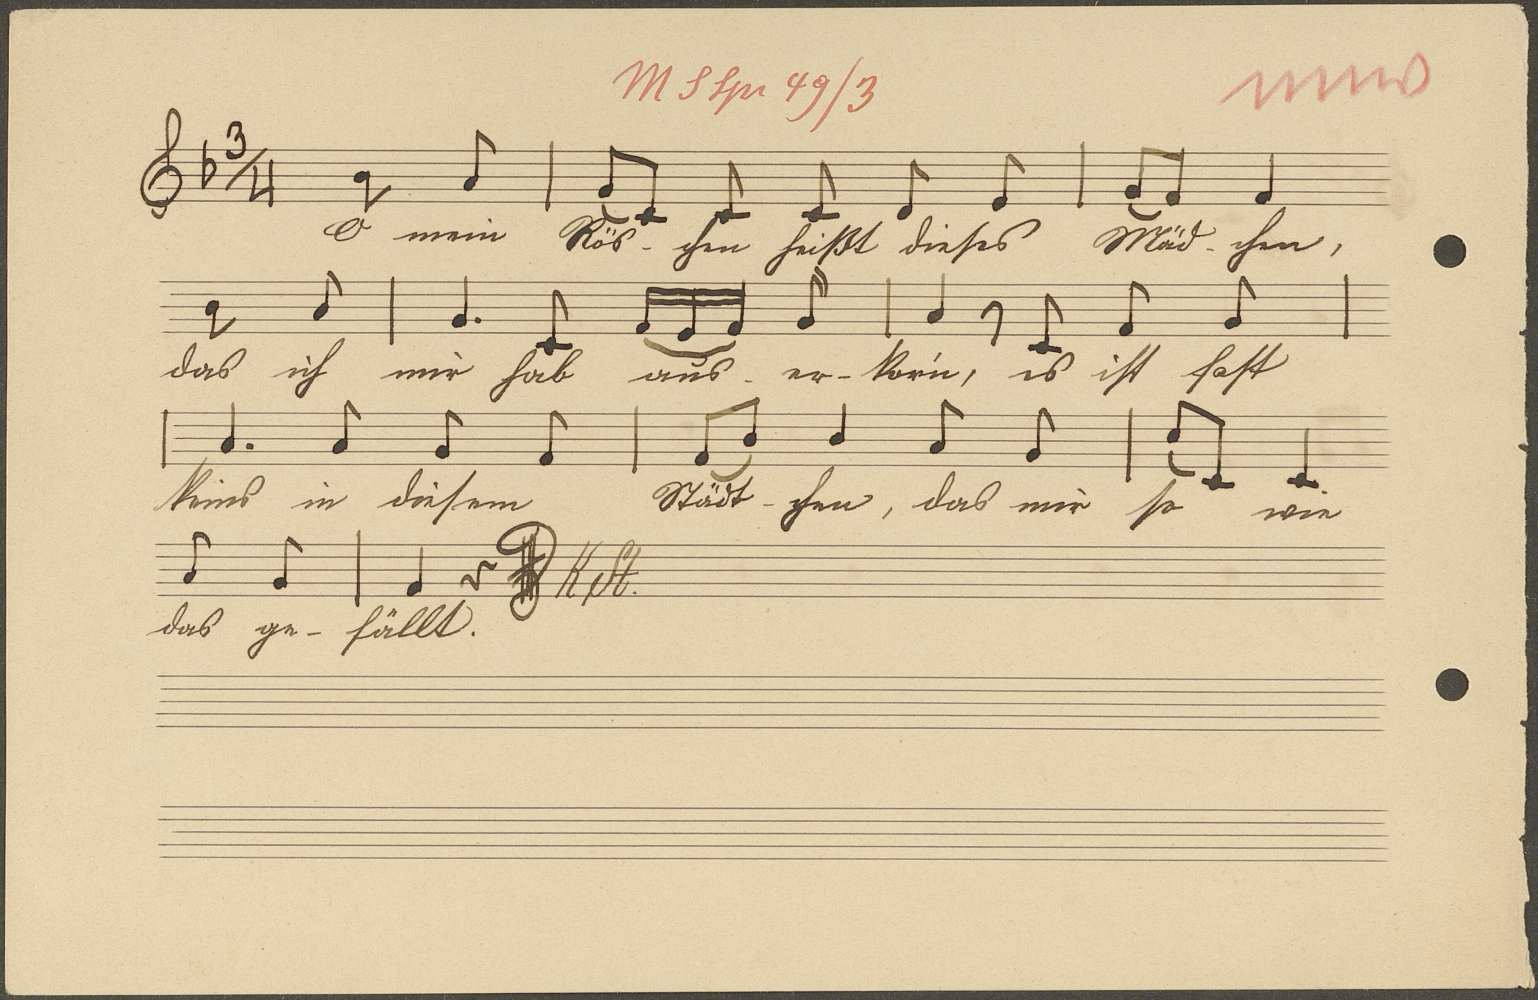 M S Spr 49/3
3/4
O mein Rös- chen heißt dieses Mäd- chen,
das ich mir hab aus- er- korn, es ist fast
keins in diesem Städt- chen, das mir so wie
das ge- fällt.